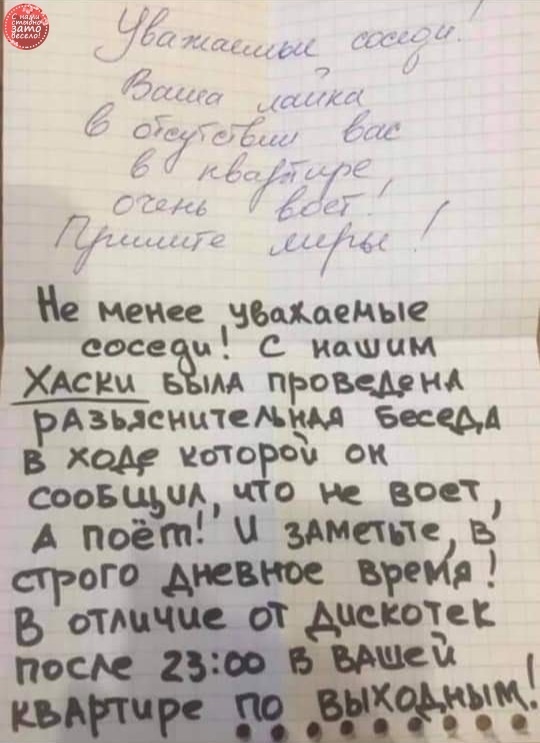 С нами
стыдно
зато
весело!
Уважаемые соседи!
Ваша лайка
в отсутствии вас
в квартире,
очень воет!
Примите меры!
Не менее уважаемые
соседи! С нашим
ХАСКИ БЫЛА проведенА
рАзьяснительнАя бесеДА
в ходе которой он
сообщил, что не воет,
А поёт! И зАметьте, в
строго Дневное время!
В отличие от Дискотек
после 23:00 в вАшей
квАртире по выхоДным!